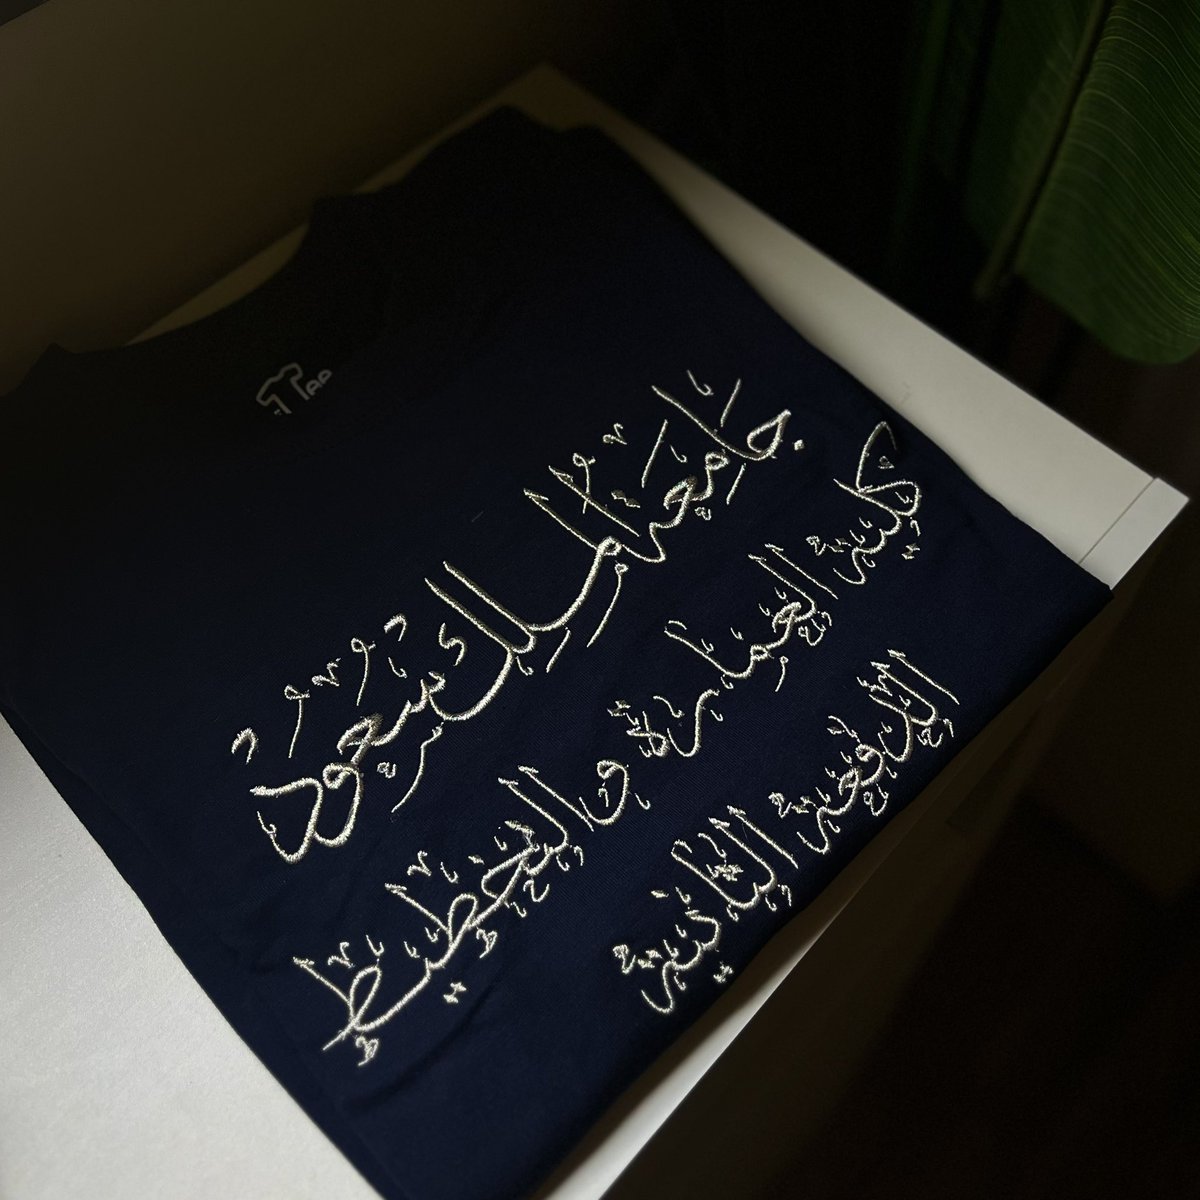 جامعة الملك سعود
كلية العمارة والتخطيط
الدفعة الثانية